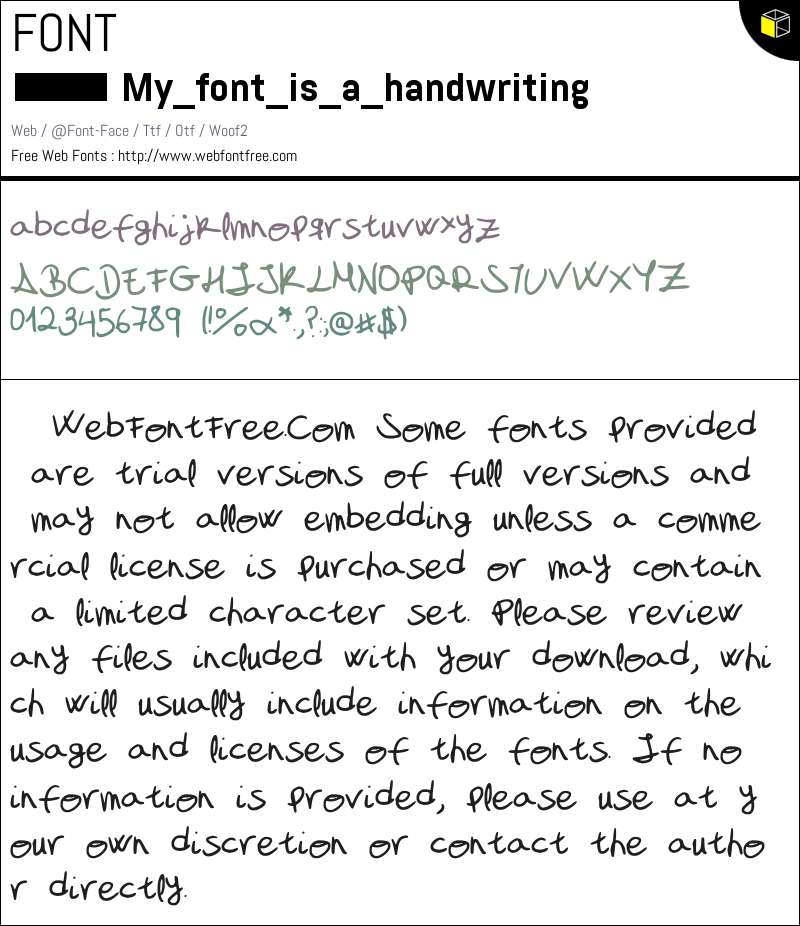 FONT
My_font_is_a_handwriting
Web / @Font-Face / Ttf / Otf / Woof2
Free Web Fonts : http://www.webfontfree.com
abcdefghijklmnopqrstuvwxyz
ABCDEFGHIJKLMNOPQRSTUVWXYZ
0123456789 (!%&*.,?:;@#$)
WebFontFree.Com Some fonts provided
are trial versions of full versions and
may not allow embedding unless a comme
rcial license is purchased or may contain
a limited character set. Please review
any files included with your download, whi
ch will usually include information on the
usage and licenses of the fonts. If no
information is provided, please use at y
our own discretion or contact the autho
r directly.